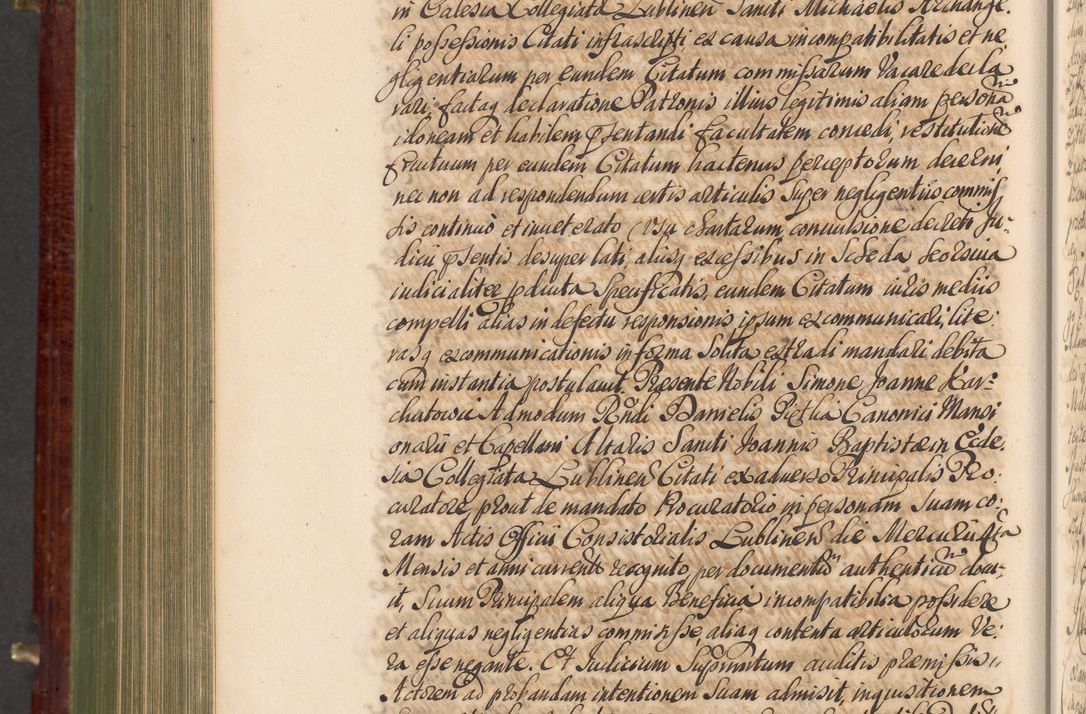 in Ecclesia Collegiata Lublinen Sancti Michaelis Archange
li possessionis Citati infrascripti ex causa incompatibilitatis et ne
gligentiarum per eundem Citatum commissarum vacare decla
rari, factaq declaratione Patronis illius legitimis aliam persona
idoneam et habilem psentandi facultatem concedi, restitutione
fructuum per eundem Citatum hactenus perceptorum decerni
nec non ad respondendum certis articulis super negligentiis commis
sis continuò et inveterato usu chartarum convulsione decreti Ju-
dicii psentis desuper lati aliisq excessibus in Scheda seorsiva
iudicialiter pducta specificatis, eundem Citatum iuris mediis
compelli alias in defectu responsionis ipsum excommunicari, lite
rasq excommunicationis in forma solita extradi mandari debita
cum instantia postulavit. Praesente Nobili Simone Joanne Kar-
chatowicz Admodum Rndi Danielis Pietka Canonici Mansi
onarii et Capellani Altaris Sancti Joannis Baptistae in Eccle
sia Collegiata Lublinen Citati ex adverso Principalis Pro
curatore prout de mandato Procuratorio in personam suam co
ram Actis Officii Consistorialis Lublinen die Mercurii 4ta
Mensis et anni currentis recognito per documentum authenticu docu-
it, Suum Principalem aliqua Beneficia incompatibilia possidere
et aliquas negligentias commisisse, aliaq contenta articulorum Ve
ra esse negante. Et Judicium Suprinatum auditis praemissis
Actorem ad probandam intentionem suam admisit, inquisitionem